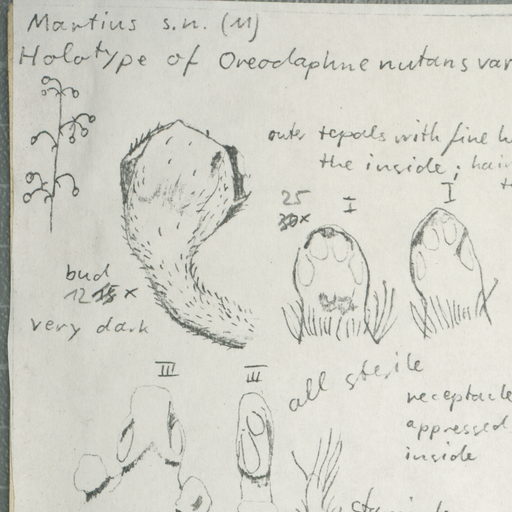 Martius s.n. (M)
Holotype of Oreodaphne nutans var
outer tepals with fine
the inside; hair
25
30×
I
I
bud
12 15 ×
very dark
III
III
all sterile
receptacle
appressed
inside